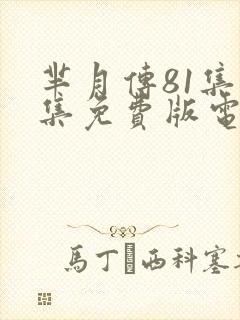 芈月傳81集
集免費版電
馬丁 西科塞